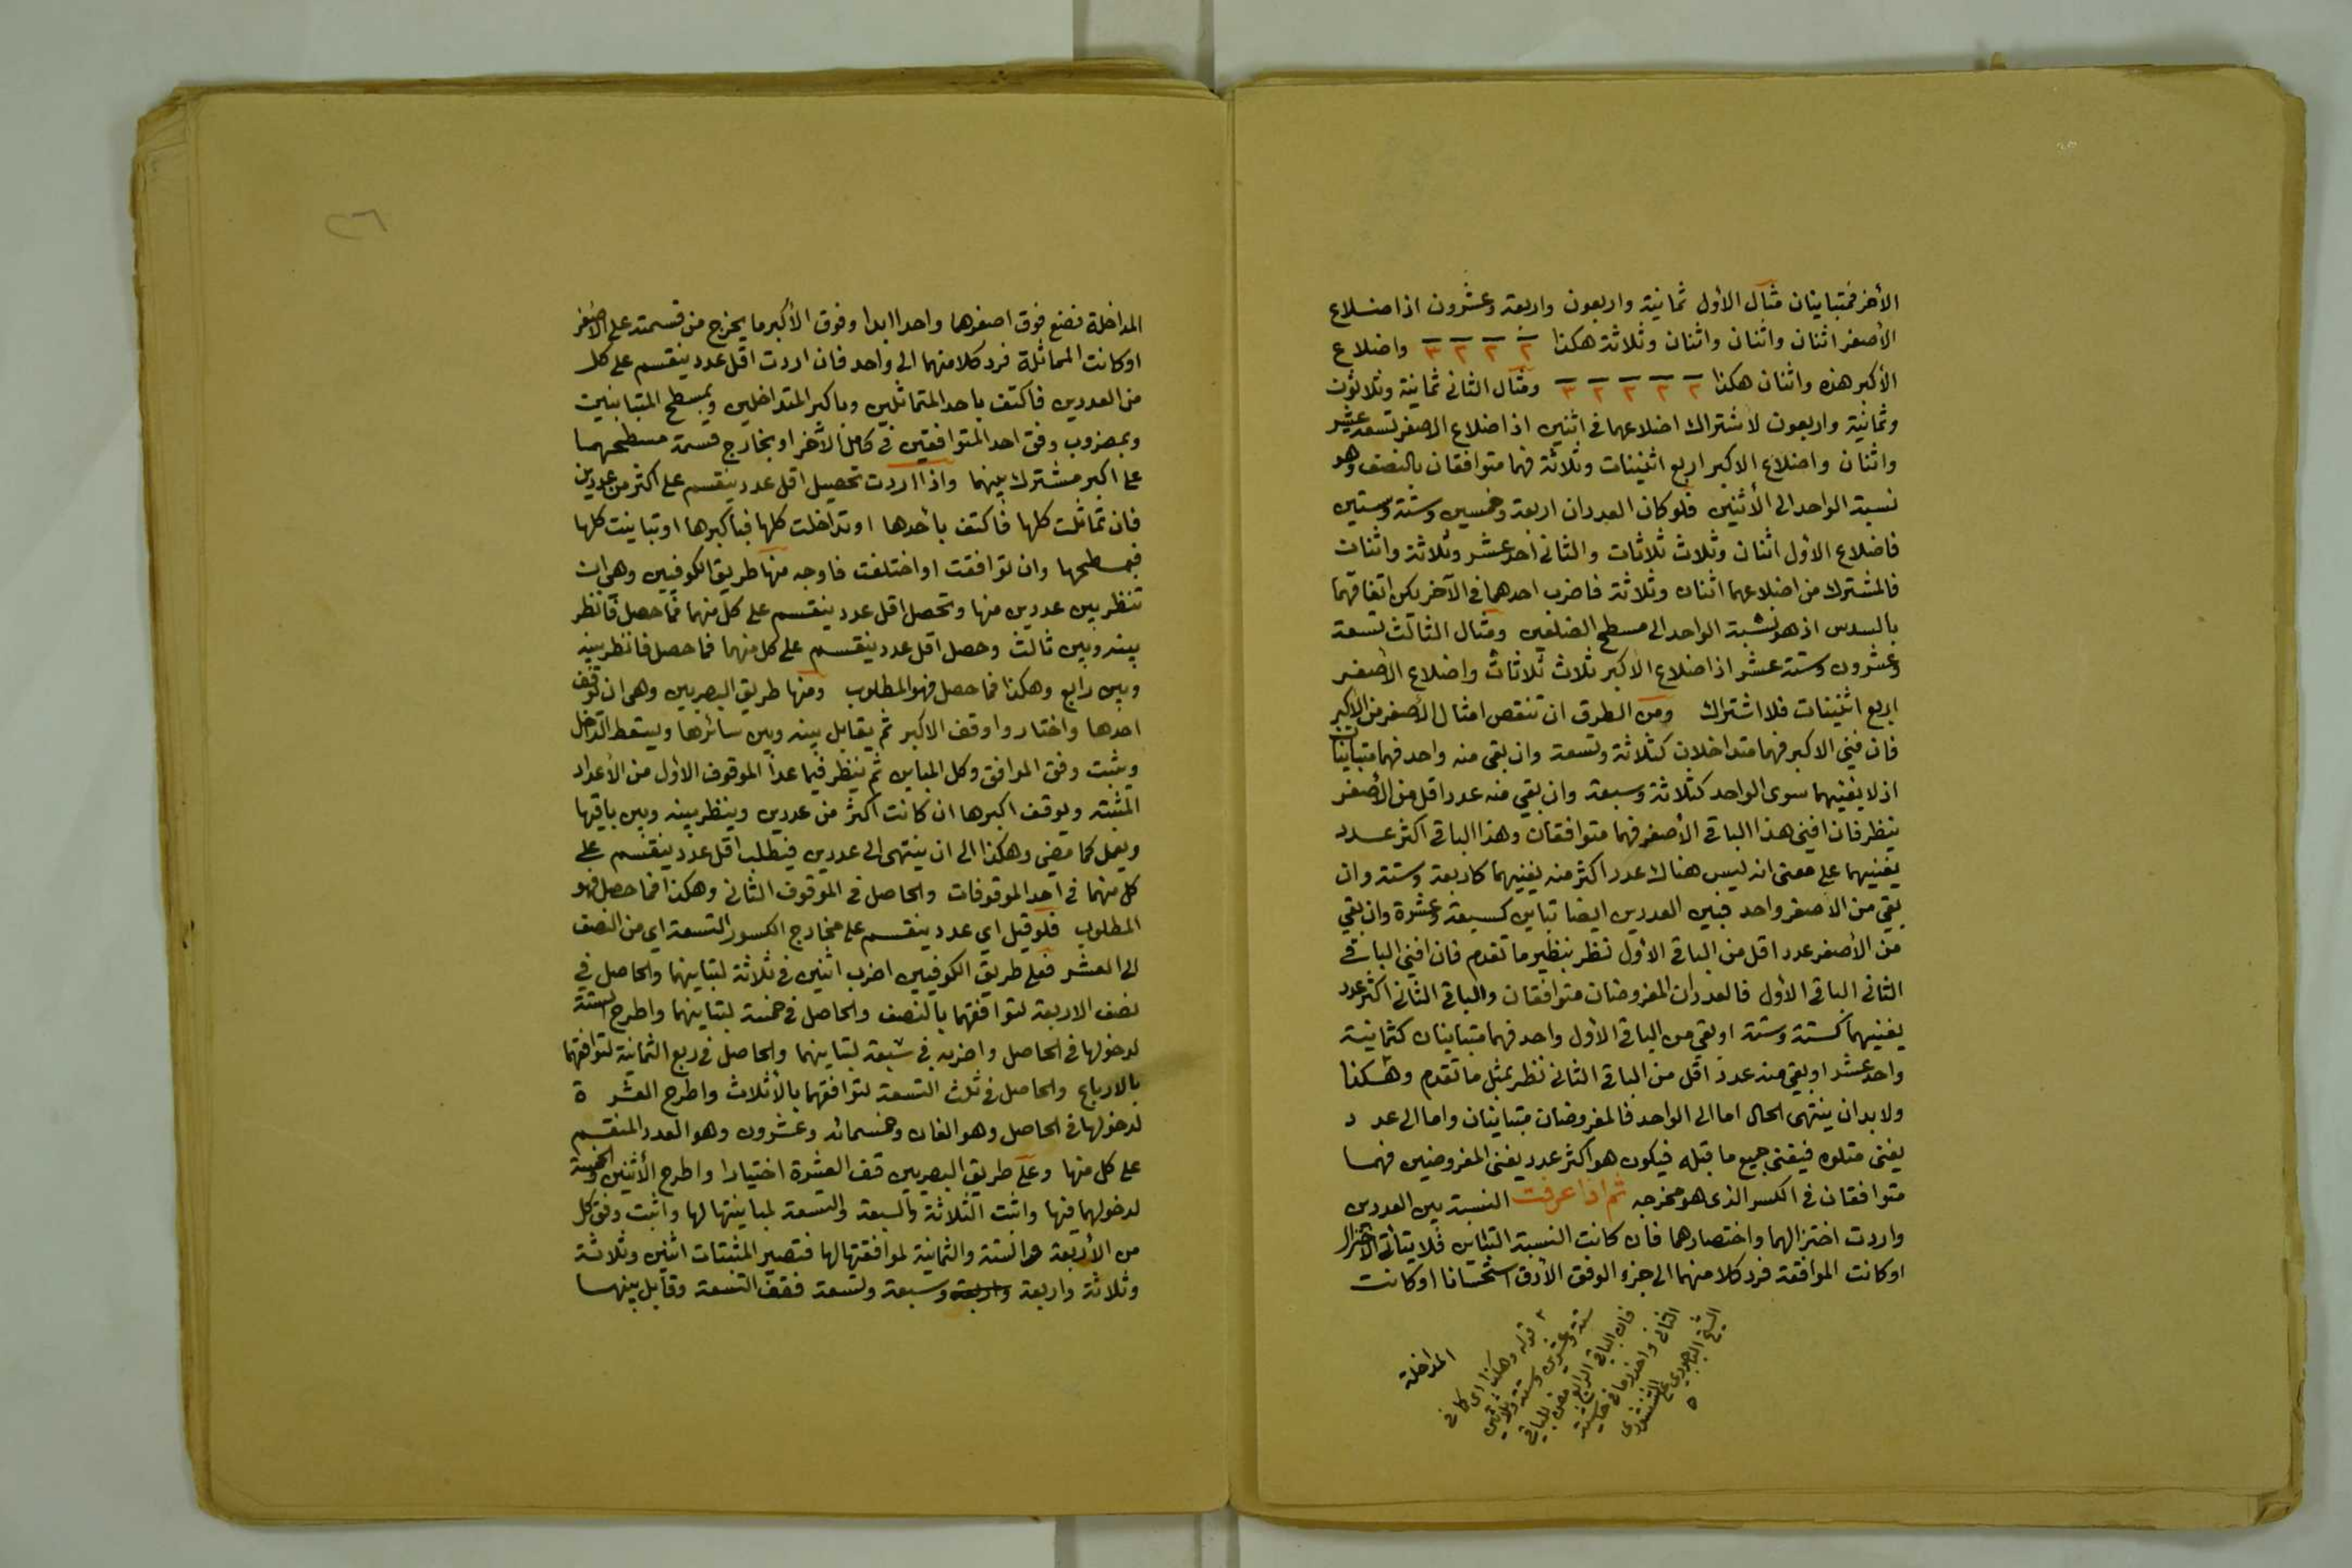 الأخر فمتباينان مثال الأول ثمانية واربعون واربعة وعشرون اذ اضلاع
الأصغر اثنان واثنان واثنان وثلاثة هكذا ٢ ٢ ٢ ٣ واضلاع
الأكبر هذه واثنان هكذا ٢ ٢ ٢ ٢ ٣ ومثال الثانى ثمانية وثلاثون
وثمانية واربعون لاشتراك اضلاعهما فى اثنين اذ اضلاع الاصغر تسعة عشر
واثنان واضلاع الاكبر اربع اثنينات وثلاثة فهما متوافقان بالنصف وهو
نسبة الواحد الى الأثنين فلو كان العددان اربعة وخمسين وستة وستين
فاضلاع الاول اثنان وثلاث ثلاثات والثانى أحد عشر وثلاثة واثنان
فالمشترك من اضلاعهما اثنان وثلاثة فاضرب احدهما فى الآخر يكن اتفاقهما
بالسدس اذ هو نسبة الواحد الى مسطح الضلعين ومثال الثالث تسعة
وعشرون وستة عشر اذ اضلاع الاكبر ثلاث ثلاثات واضلاع الأصغر
اربع اثنينات فلا اشتراك ومن الطرق ان تنقص امثال الأصغر من الأكبر
فان فنى الاكبر فهما متداخلان كثلاثة وتسعة وان بقى منه واحد فهما متباينان
اذ لا يفنيهما سوى الواحد كثلاثة وسبعة وان بقى منه عدد اقل من الأصغر
ينظر فان افنى هذا الباقى الأصغر فهما متوافقان وهذا الباقى اكثر عدد
يفنيهما على معنى انه ليس هناك عدد اكثر منه يفنيهما كاربعة وستة وان
بقى من الاصغر واحد فبين العددين ايضا تباين كسبعة وعشرة وان بقى
من الأصغر عدد اقل من الباقى الأول نظر بنظير ما تقدم فان افنى الباقى
الثانى الباقى الأول فالعددان المفروضان متوافقان والباقى الثانى اكثر عدد
يفنيهما كستة وستة او بقى من الباقى الأول واحد فهما متباينان كثمانية
واحد عشر او بقى منه عدد اقل من الباقى الثانى نظر بمثل ما تقدم وهكذا
ولا بد ان ينتهى الحال اما الى الواحد فالمفروضان متباينان واما الى عدد
يفنى متلوه فيفنى جميع ما قبله فيكون هو اكثر عدد يفنى المفروضين فهما
متوافقان فى الكسر الذى هو مخرجه ثم اذا عرفت النسبة بين العددين
واردت اختزالهما واختصارهما فان كانت النسبة التباين فلا يتأتى الاختزال
او كانت الموافقة فرد كلا منهما الى جزء الوفق الأدق استحسانا او كانت
المداخلة
٢ قوله وهكذا اى كما فى
ستة وعشرين وستة وثلاثين
فان الباقى الرابع مفن للباقى
الثانى
المداخلة فضع فوق اصغرها واحدا ابدا وفوق الأكبر ما يخرج من قسمته على الاصغر
او كانت المماثلة فرد كلا منهما الى واحد فان اردت اقل عدد ينقسم على كل
من العددين فاكتف باحد المتماثلين وباكبر المتداخلين وبمسطح المتباينين
وبمضروب وفق احد المتوافقين فى كامل الآخر او بخارج قسمة مسطحهما
على اكبر مشترك بينهما واذا اردت تحصيل اقل عدد ينقسم على اكثر من عددين
فان تماثلت كلها فاكتف بأحدها او تداخلت كلها فباكبرها او تباينت كلها
فبمسطحها وان توافقت او اختلفت فاوجه منها طريق الكوفيين وهى ان
تنظر بين عددين منها وتحصل اقل عدد ينقسم على كل منهما فما حصل فانظر
بينه وبين ثالث وحصل اقل عدد ينقسم على كل منهما فما حصل فانظر بينه
وبين رابع وهكذا فما حصل فهو المطلوب ومنها طريق البصريين وهى ان توقف
احدها واختاروا وقف الاكبر ثم يقابل بينه وبين سائرها ويسقط الداخل
ويثبت وفق الموافق وكل المباين ثم ينظر فيما عدا الموقوف الاول من الأعداد
المثبتة ويوقف اكبرها ان كانت اكثر من عددين وينظر بينه وبين باقيها
ويعمل كما مضى وهكذا الى ان ينتهى الى عددين فيطلب اقل عدد ينقسم على
كل منهما فى احد الموقوفات والحاصل فى الموقوف الثانى وهكذا فما حصل فهو
المطلوب فلو قيل اي عدد ينقسم على مخارج الكسور التسعة اي من النصف
الى العشر فعلى طريق الكوفيين اضرب اثنين فى ثلاثة لتباينهما والحاصل فى
نصف الاربعة لتوافقهما بالنصف والحاصل فى خمسة لتباينهما واطرح الستة
لدخولها فى الحاصل واضربه فى سبعة لتباينهما والحاصل فى ربع الثمانية لتوافقهما
بالارباع والحاصل فى ثلث التسعة لتوافقهما بالأثلاث واطرح العشرة
لدخولها فى الحاصل وهو الفان وخمسمائه وعشرون وهو العدد المنقسم
على كل منها وعلى طريق البصريين قف العشرة اختيارا واطرح الأثنين والخمسة
لدخولهما فيها واثبت الثلاثة والسبعة والتسعة لمباينتها لها واثبت وفق كل
من الأربعة والستة والثمانية لموافقتها لها فتصير المثبتات اثنين وثلاثة
وثلاثة واربعة واربعة وسبعة وتسعة فقف التسعة وقابل بينهما
٢٦